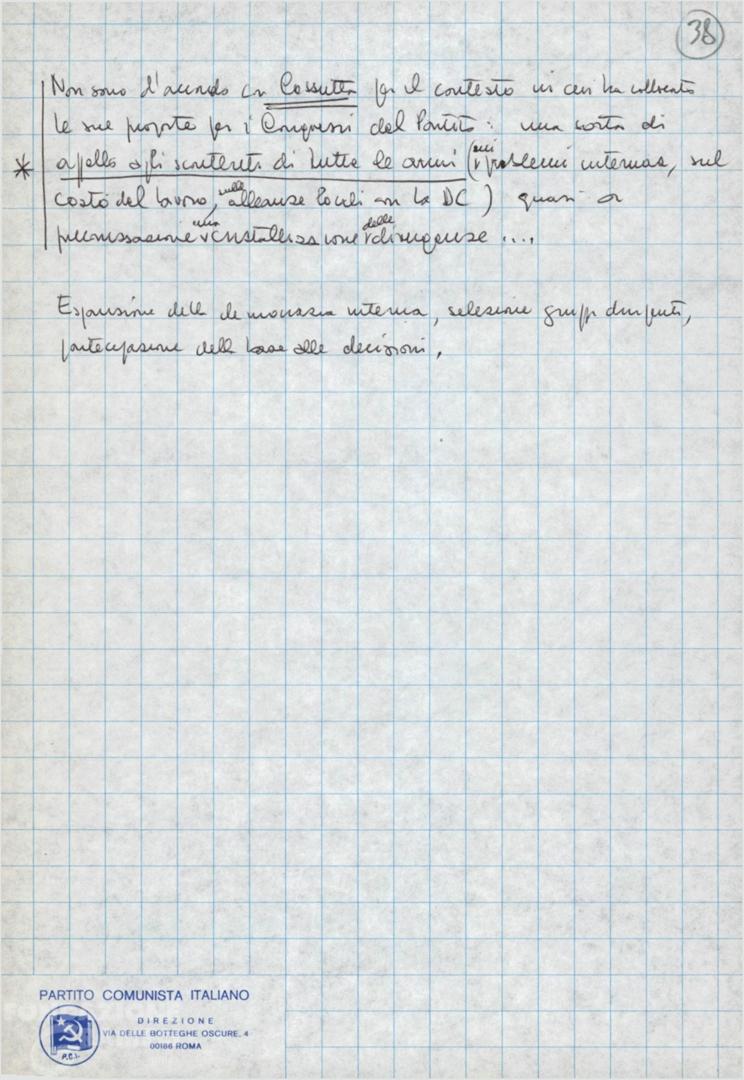 38
Non sono d'accordo con Cossutta per il contesto in cui ha collocato
le sue proposte per i Congressi del Partito: una sorta di
* appello agli scontenti di tutte le armi (sui problemi internaz, sul
costo del lavoro, sulle alleanze locali con la DC) quasi a
una cristallizzazione delle divergenze ....
Espansione della democrazia interna, selezione gruppi dirigenti,
partecipazione della base alle decisioni.
PARTITO COMUNISTA ITALIANO
DIREZIONE
VIA DELLE BOTTEGHE OSCURE, 4
00186 ROMA
P.C.I.